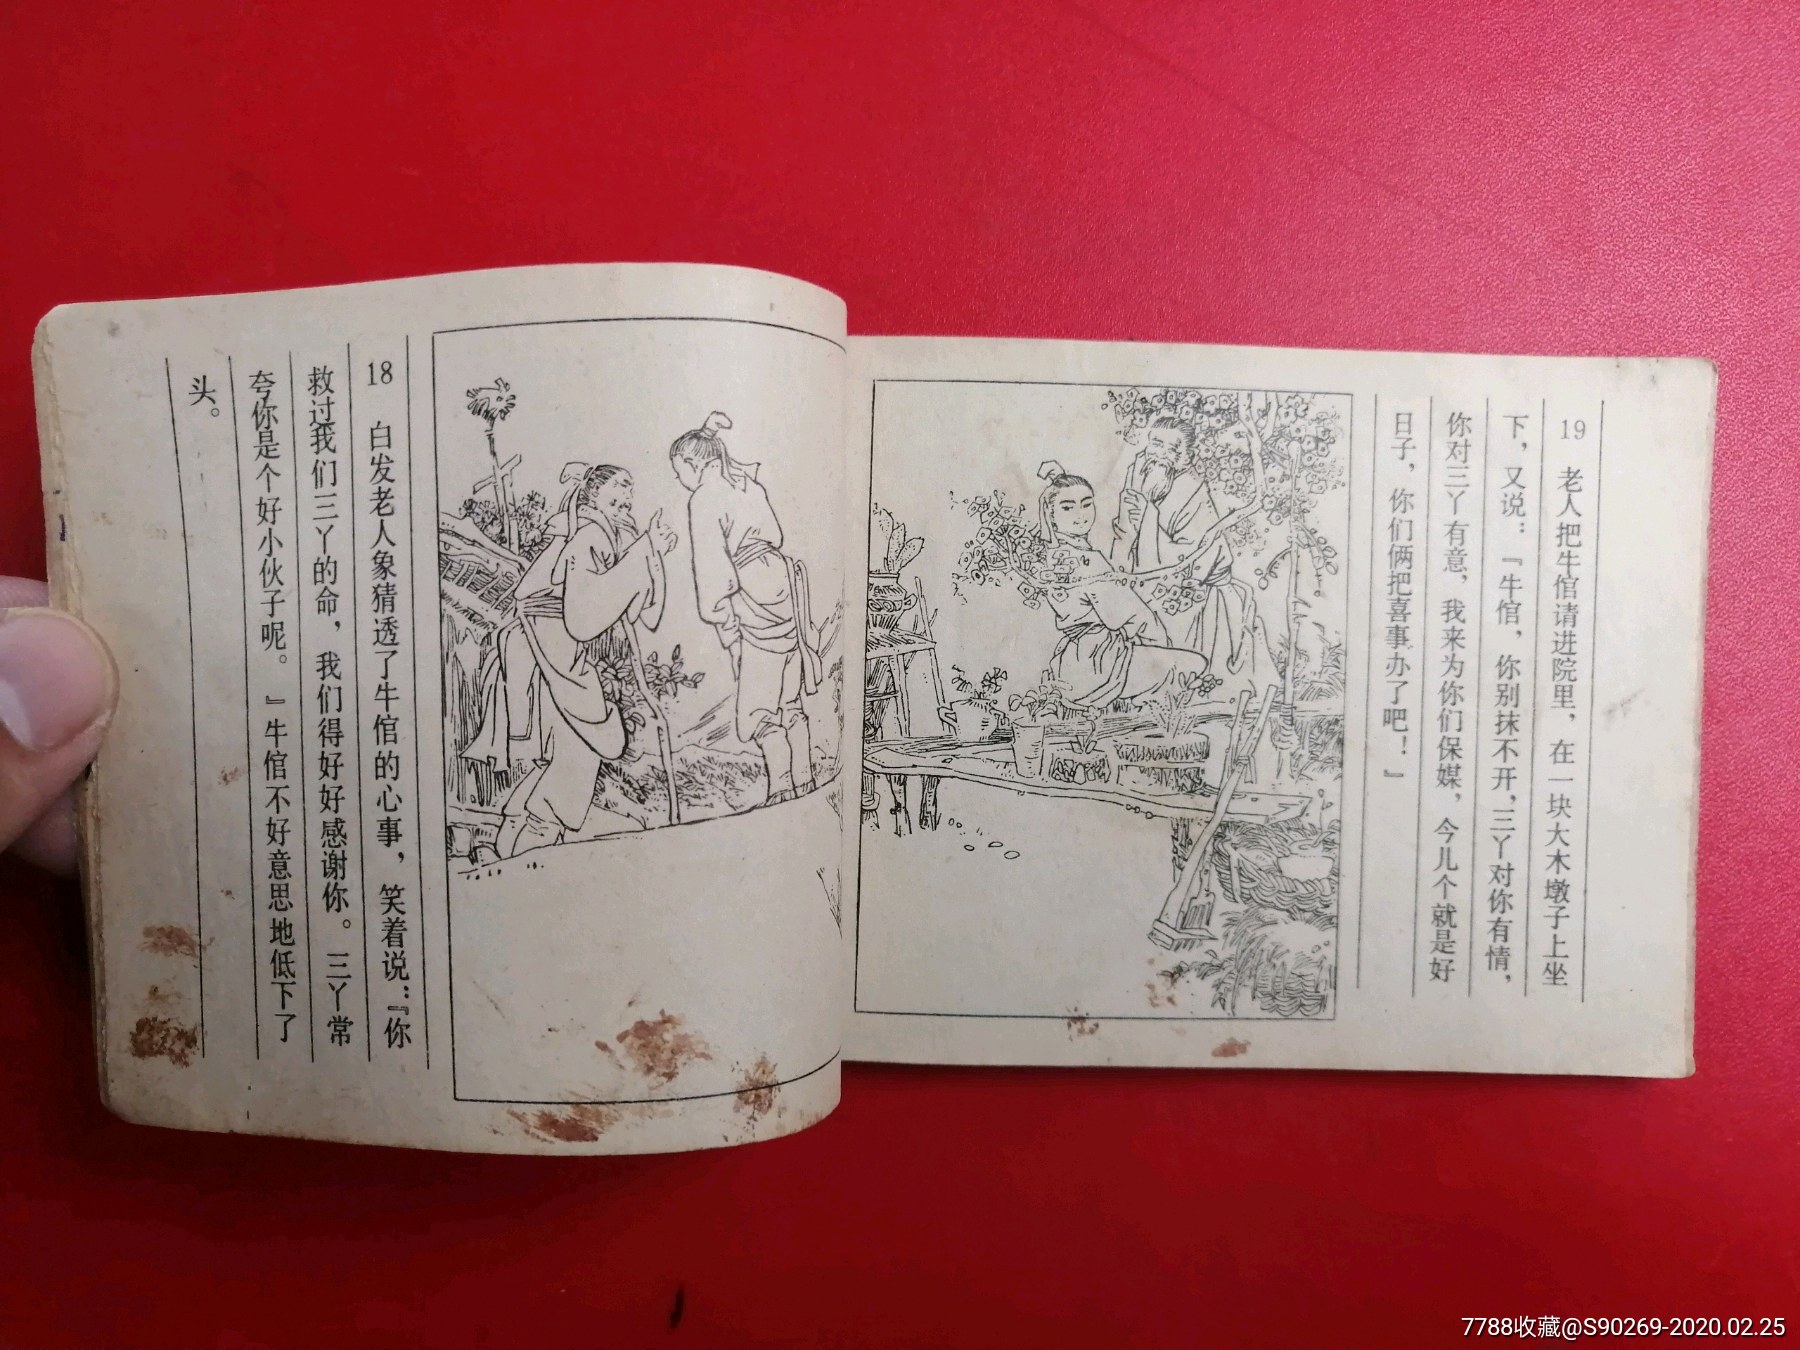 18 白发老人象猜透了牛倌的心事，笑着说：『你
救过我们三丫的命，我们得好好感谢你。三丫常
夸你是个好小伙子呢。』牛倌不好意思地低下了
头。
19 老人把牛倌请进院里，在一块大木墩子上坐
下，又说：『牛倌，你别抹不开，三丫对你有情，
你对三丫有意，我来为你们保媒，今儿个就是好
日子，你们俩把喜事办了吧！』
7788收藏@S90269-2020.02.25